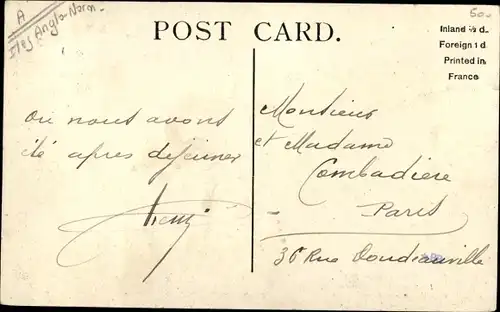 A
Iles Anglo-Norm.
50.-
POST CARD.
Inland ½ d.
Foreign 1 d
Printed in
France
où nous avons
été apres dejeuner
Monsieur
et Madame
Combadiere
Paris
36 Rue Doudeauville